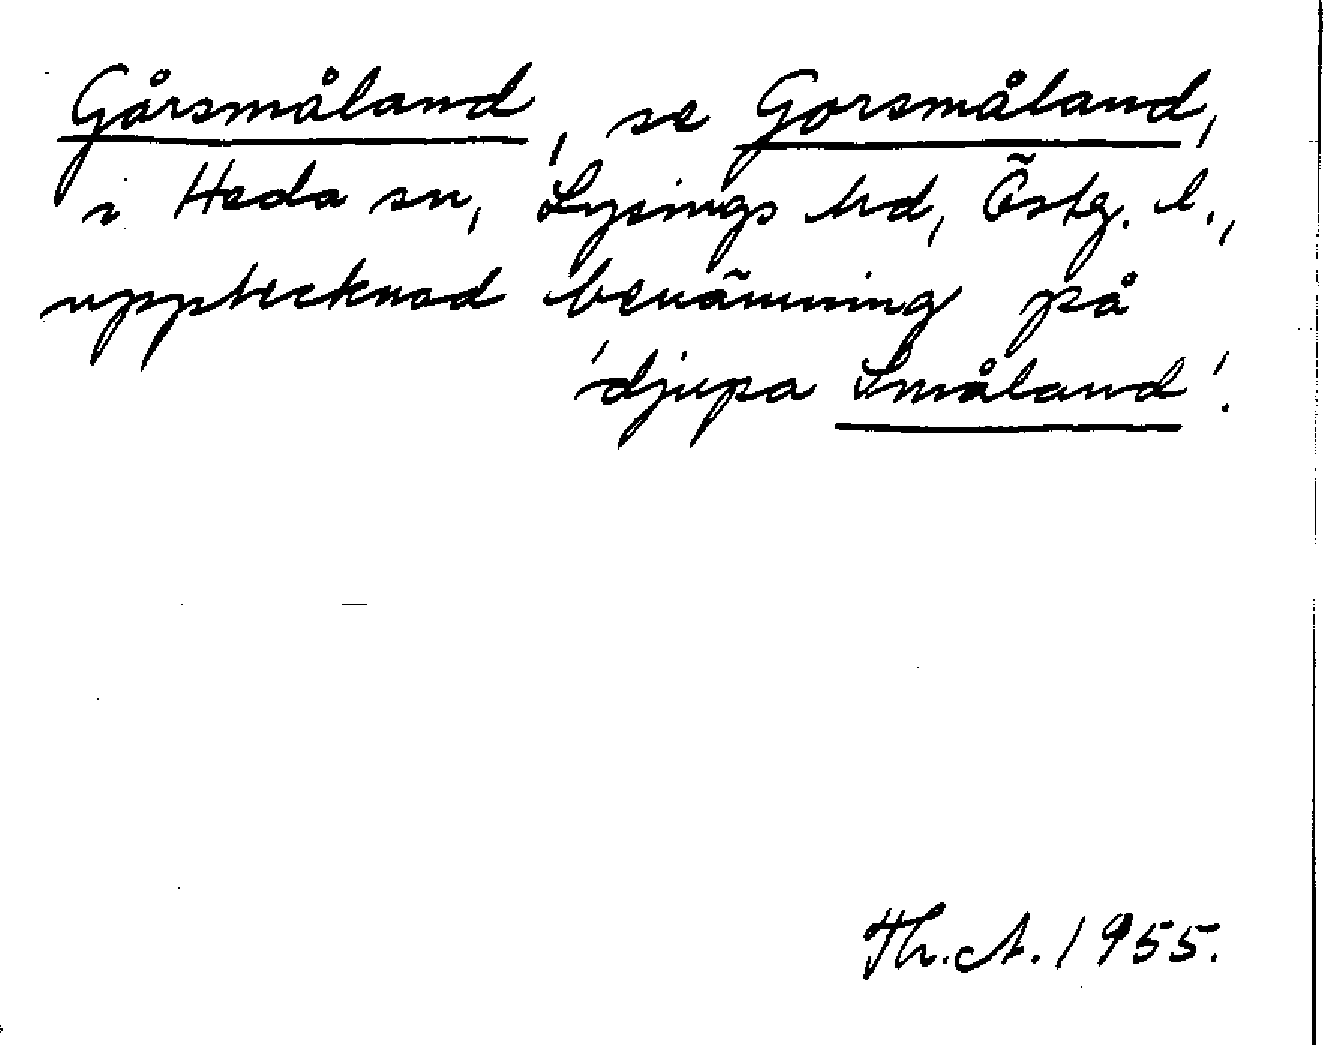 Gårsmåland, se Gorsmåland,
i Heda sn, Lysings hd, Östg. l.,
upptecknad benämning på
'djupa Småland'.
Th. A. 1955.